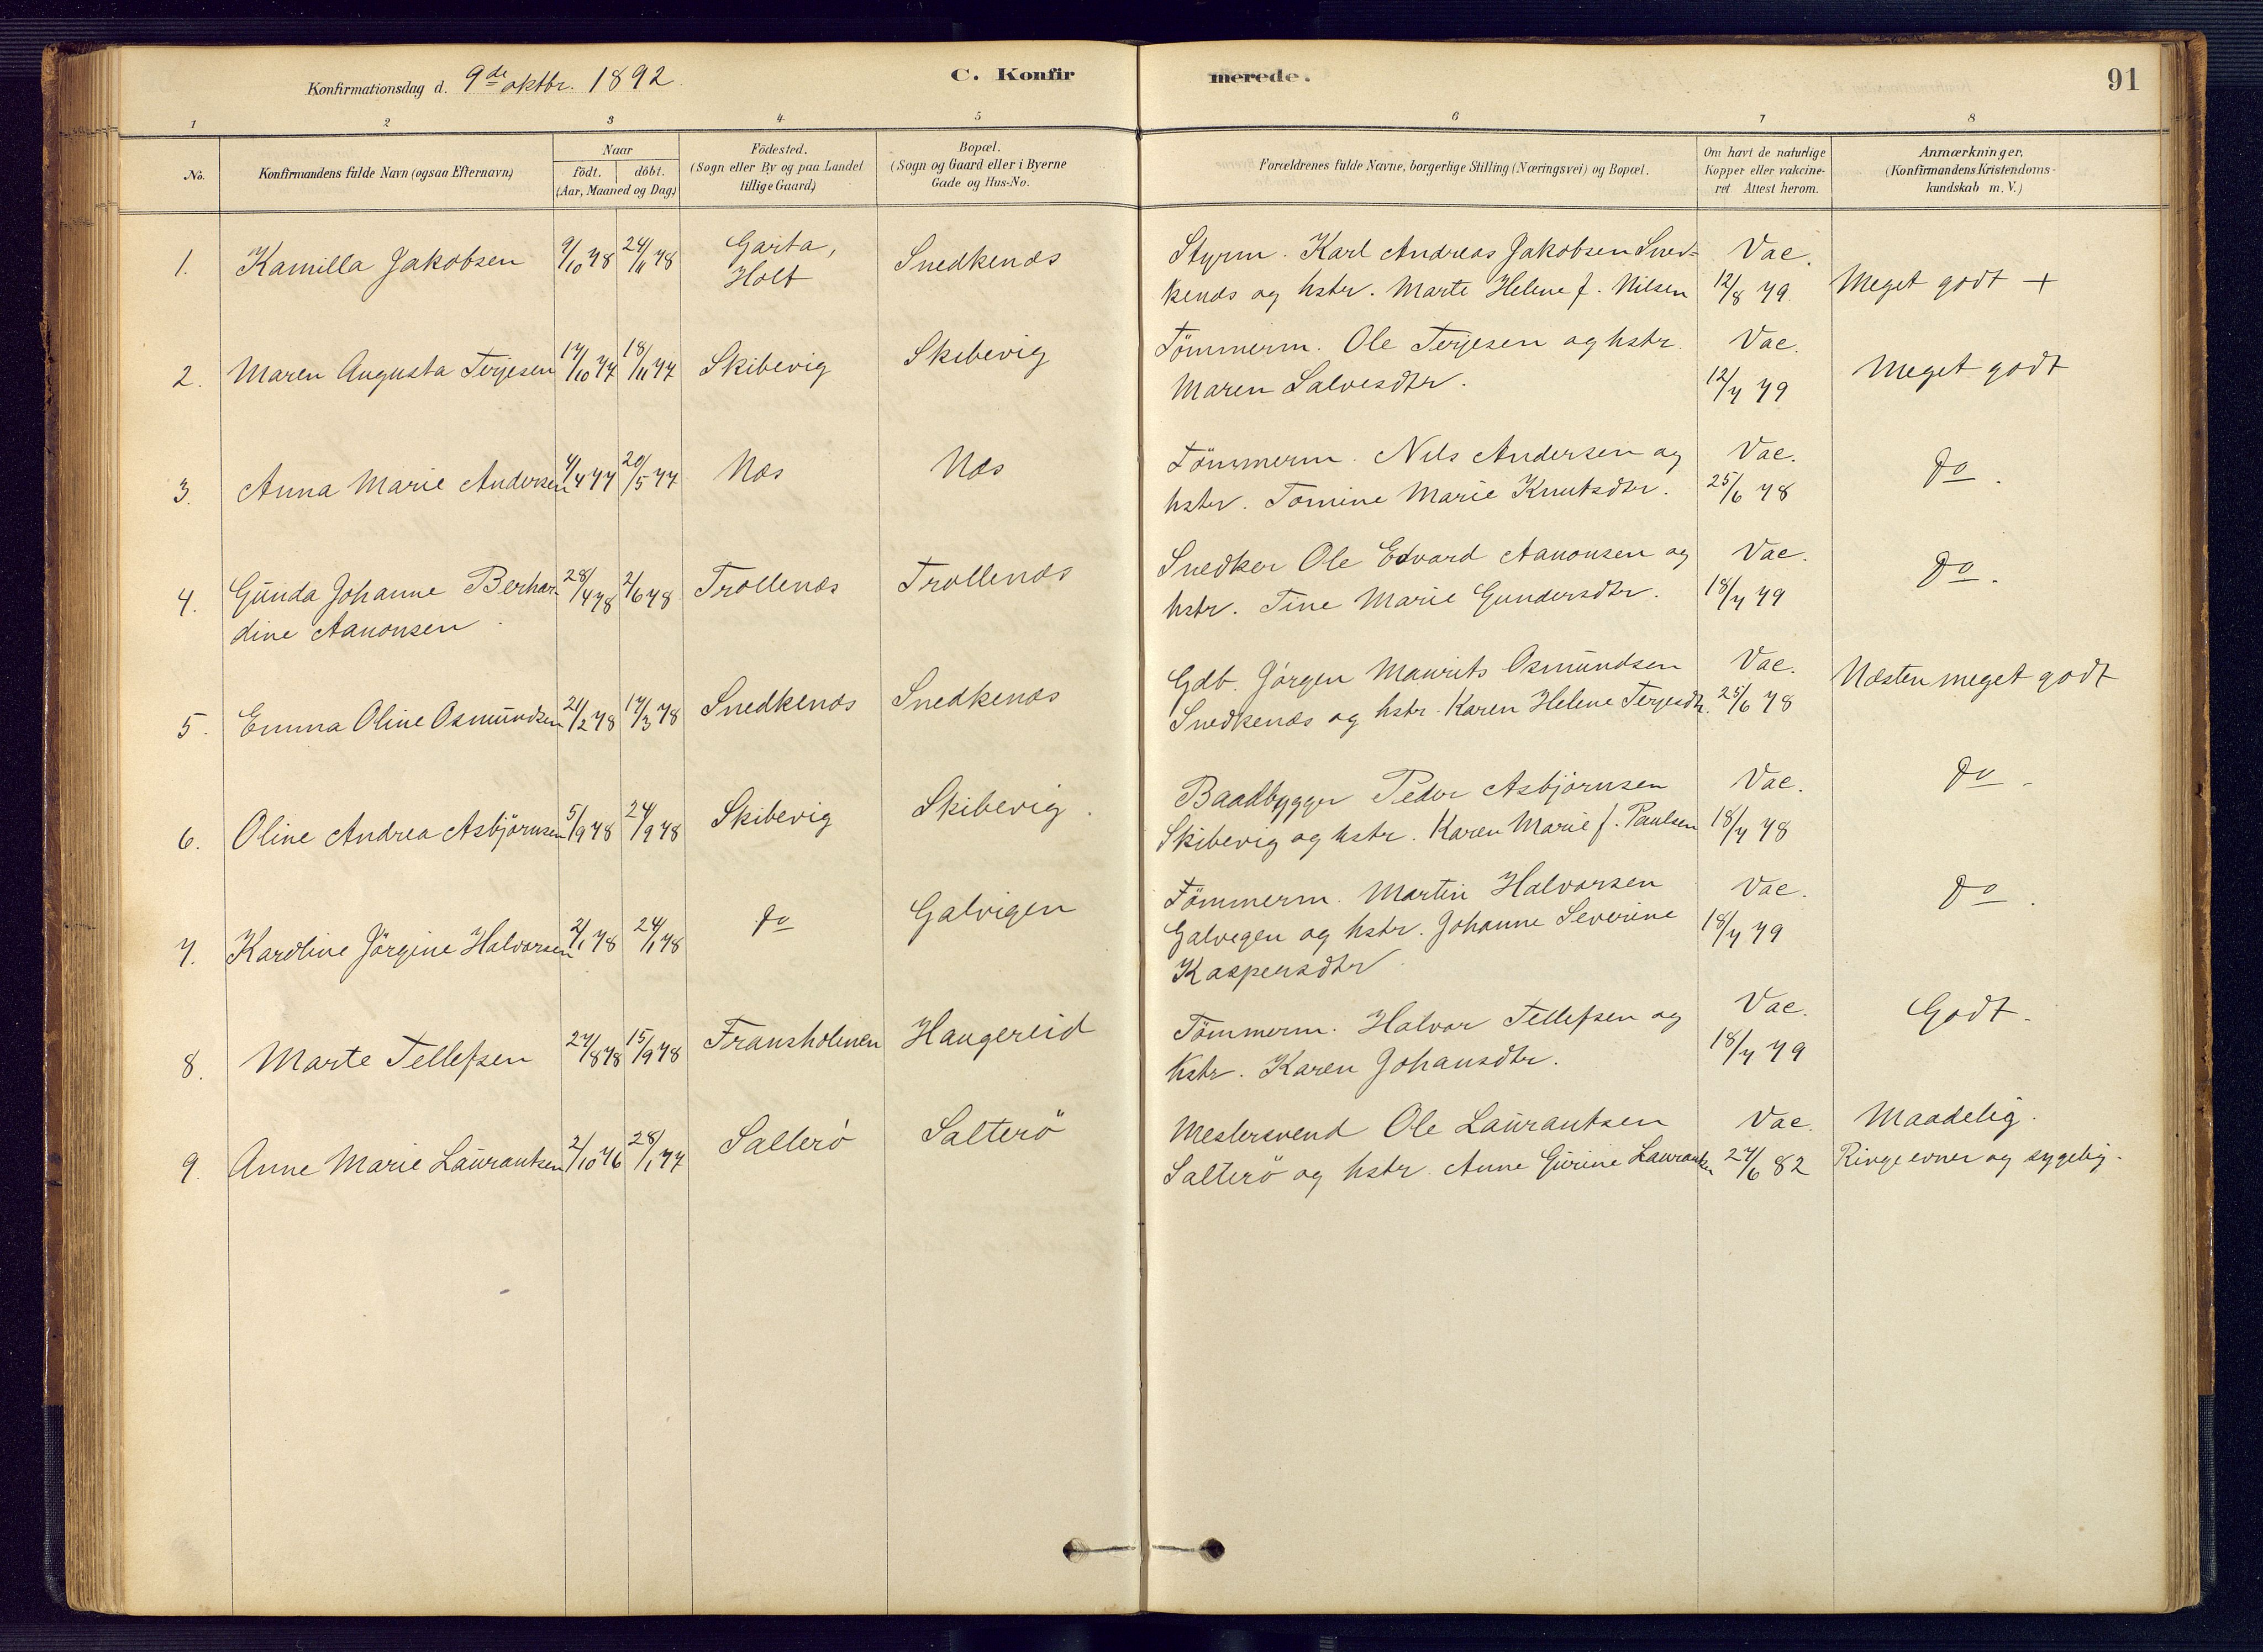 Konfirmationsdag d. 9de oktbr. 1892.
C. Konfirmerede.
91
1 2 3 4 5 6 7 8
No.
Konfirmandens fulde Navn (ogsaa Efternavn)
Naar
födt. döbt.
(Aar, Maaned og Dag)
Födested.
(Sogn eller By og paa Landet
tillige Gaard)
Bopæl.
(Sogn og Gaard eller i Byerne
Gade og Hus-No.
Forældrenes fulde Navne, borgerlige Stilling (Næringsvei) og Bopæl.
Om havt de naturlige
Kopper eller vakcine-
ret Attest herom.
Anmærkninger.
(Konfirmandens Kristendoms-
kundskab m. V.)
1. Kamilla Jakobsen 9/10 78 24/11 78 Garta, Snedkenæs
Holt
Styrm. Karl Andreas Jakobsen Sned- Vac.
kenæs og hstr. Marte Helene f. Nilsen 12/8 79. Meget godt +
2. Maren Augusta Terjesen 17/10 77 18/11 77 Skibevig Skibevig
Tömmerm. Ole Terjesen og hstr. Vac. Meget godt
Maren Salvesdtr. 12/7 79
3. Anna Marie Andersen 4/4 77 20/5 77 Næs Næs
Tömmerm. Nils Andersen og Vac. do.
hstr. Tomine Marie Knutsdtr. 25/6 78
4. Gunda Johanne Berhar- 28/4 78 2/6 78 Trollenæs Trollenæs
dine Aanonsen.
Snedker Ole Edvard Aanonsen og Vac. do.
hstr. Tine Marie Gundersdtr. 18/7 79
5. Emma Oline Osmundsen 21/2 78 17/3 78 Snedkenæs Snedkenæs
Gdb. Jörgen Maurits Osmundsen Vac. Næsten meget godt
Snedkenæs og hstr. Karen Helene Terjesdtr. 25/6 78
6. Oline Andrea Asbjörnsen 5/9 78 24/9 78 Skibevig Skibevig.
Baadbygger Peder Asbjörnsen Vac. do.
Skibevig og hstr. Karen Marie f. Paulsen 18/7 78
7. Karoline Jörgine Halvorsen 2/1 78 24/1 78 do Galvigen
Tömmerm. Martin Halvorsen Vac. do.
Galvegen og hstr. Johanne Severine 18/7 79
Kaspersdtr.
8. Marte Tellefsen 27/8 78 15/9 78 Fransholmen Haugereid
Tömmerm. Halvor Tellefsen og Vac. Godt.
hstr. Karen Johansdtr. 18/7 79
9. Anne Marie Laurantsen 2/10 76 28/1 77 Salterö Salterö
Mestersvend Ole Laurantsen Vac. Maadelig.
Salterö og hstr. Anne Gurine Laurantsen 27/6 82 Ringe evner og sygelig.